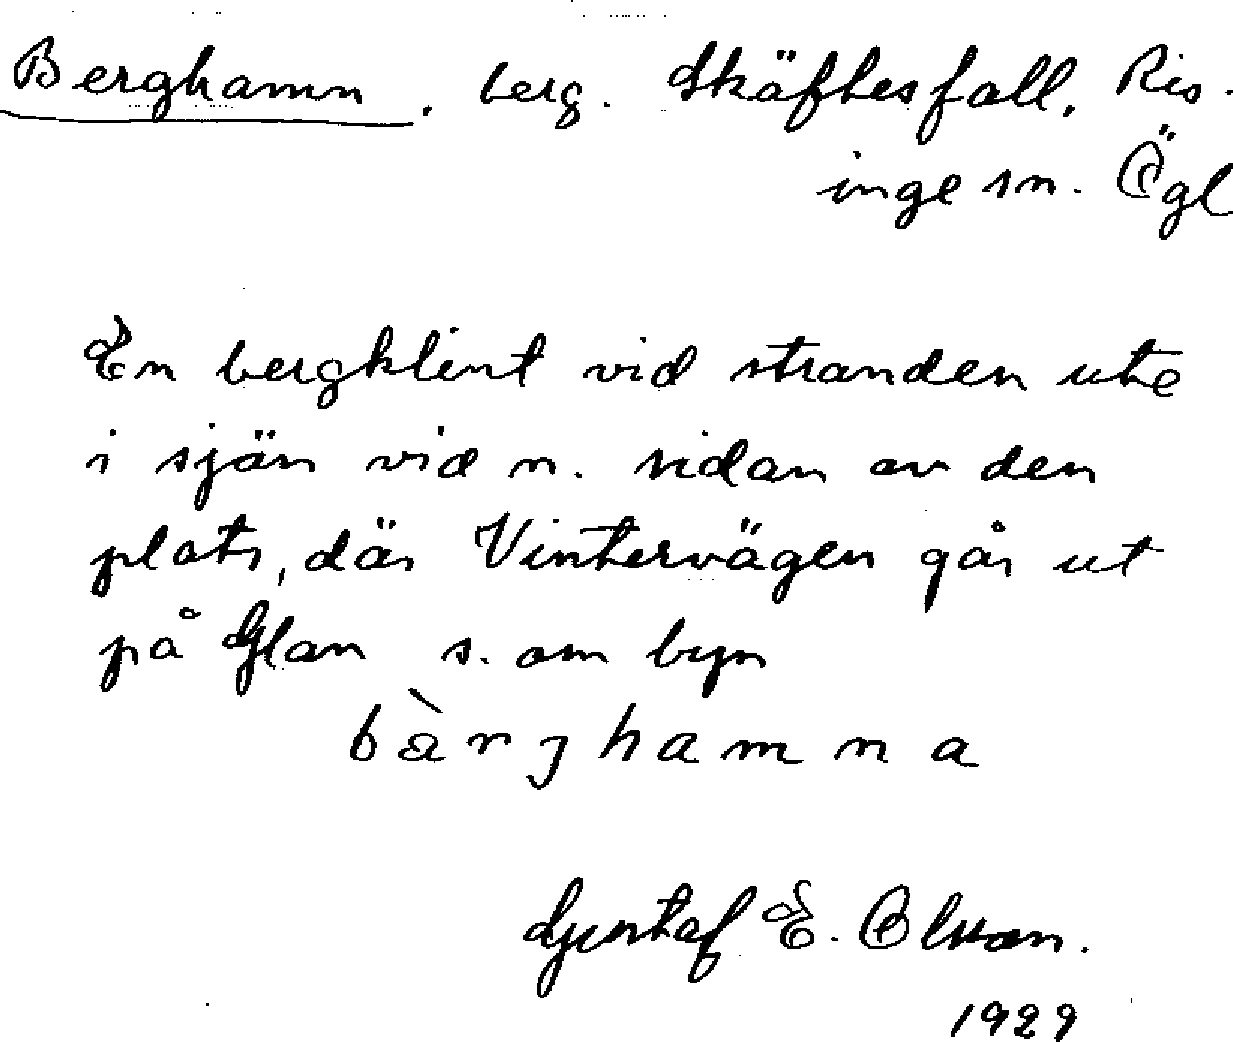 Berghamn, berg. Skäftesfall, Ris-
inge sn. Ögl
En bergklint vid stranden ute
i sjön vid n. sidan av den
plats, där Vintervägen går ut
på Glan s. om byn
bàrjhamna
Gustaf E. Olsson.
1929